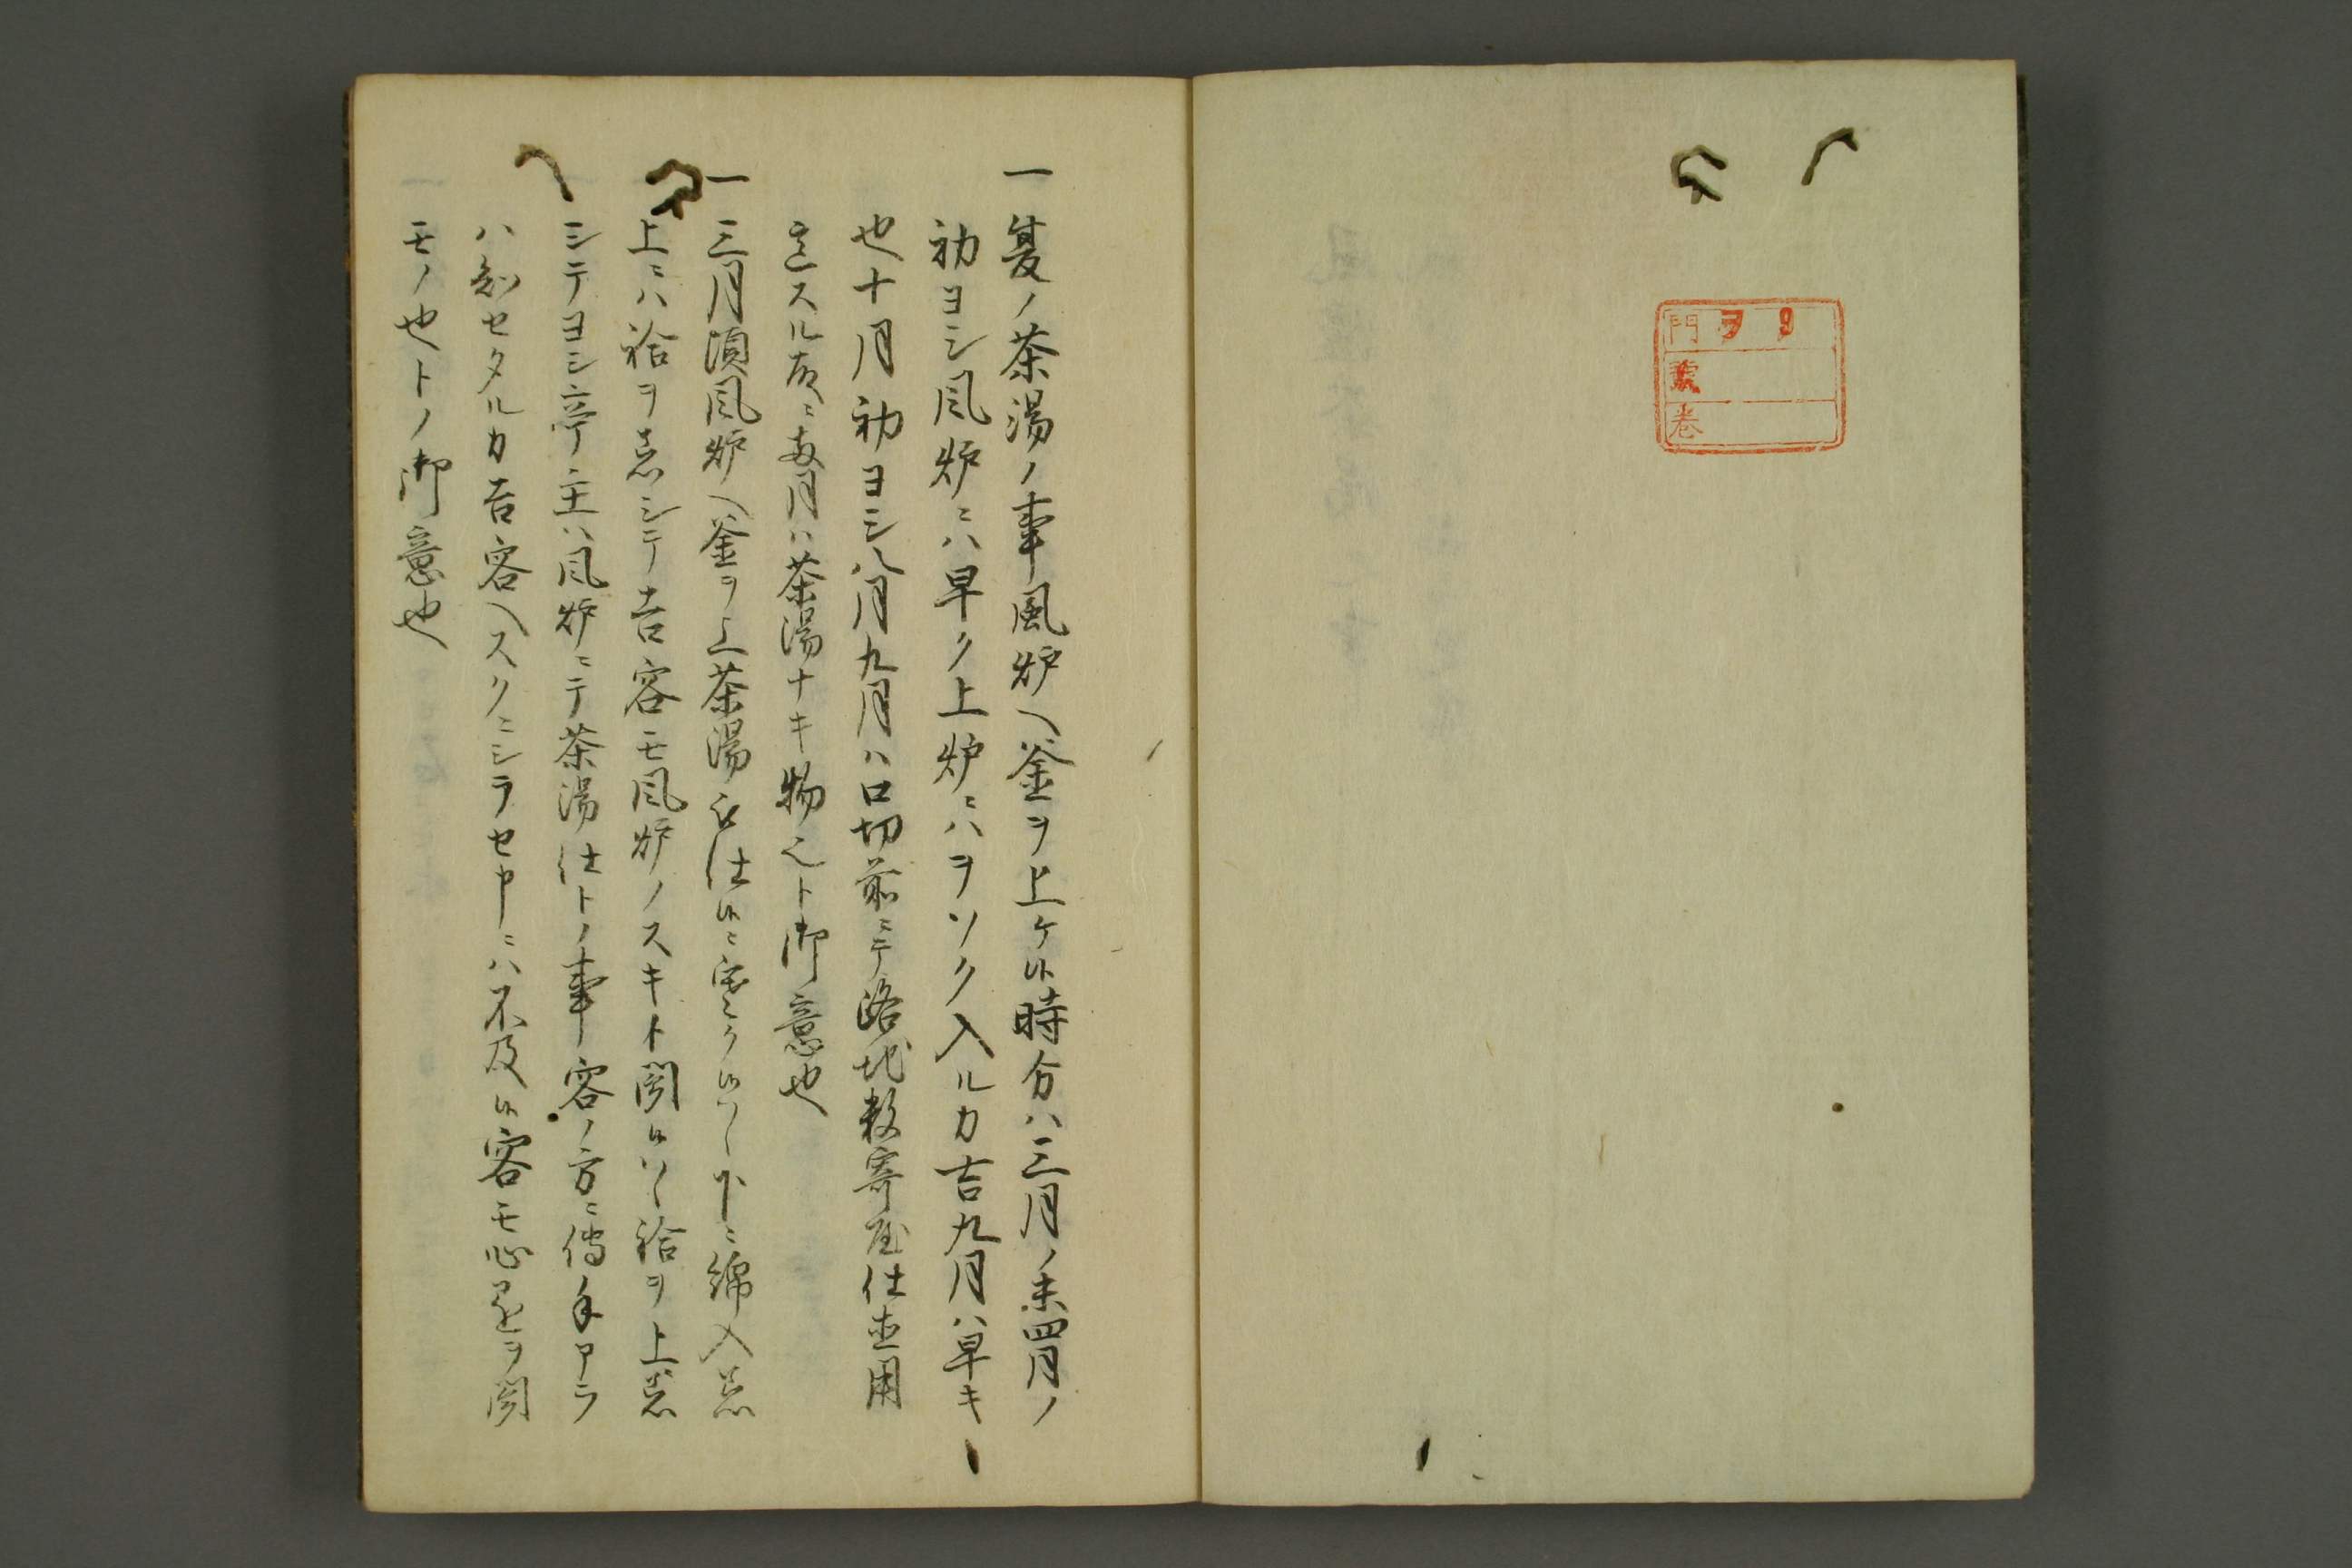 門 ヲ 9
號
巻
一夏ノ茶湯ノ事風炉ヘ釜ヲ上ケ候時分ハ三月ノ末四月ノ
初ヨシ風炉ニハ早ク上炉ニハヲソク入ルカ吉九月ハ早キ
也十月初ヨシ八月九月ハ口切前ニテ路地数寄屋仕直用
意スル故ニ両月ハ茶湯ナキ物也ト御意也
一三月頃風炉ヘ釜ヲ上茶湯仕候ニ寒ク候ハヽ下ニ綿入着
上ニハ袷ヲ着シテ吉客モ風炉ノスキト聞候ハヽ袷ヲ上着
シテヨシ亭主ハ風炉ニテ茶湯仕トノ事客ノ方ニ伝手アラ
ハ知セタルカ吉客ヘスクニシラセ申ニハ不及候客モ心遣ヲ聞
モノ也トノ御意也